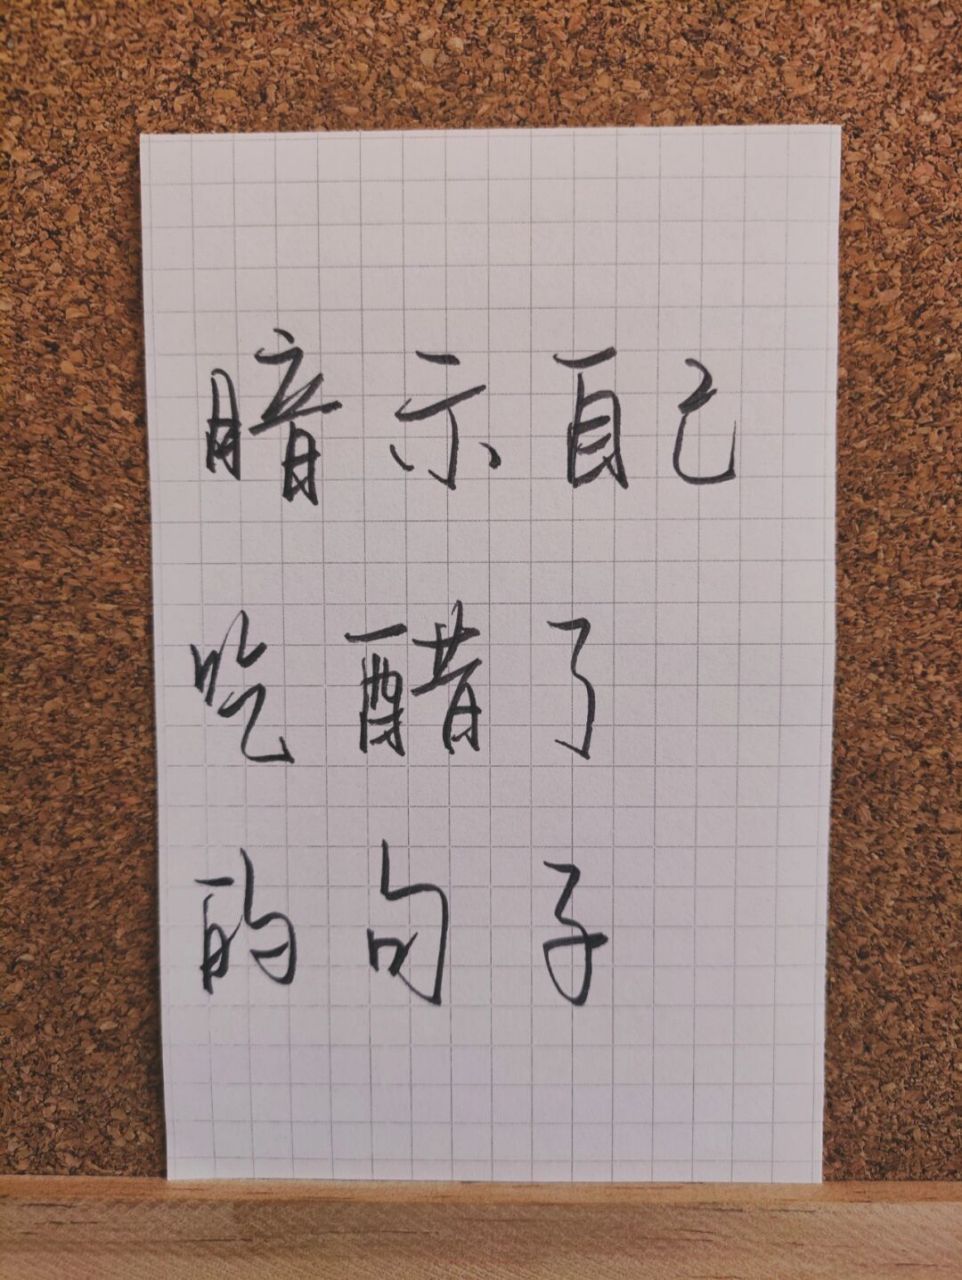 暗示自己
吃醋了
的句子